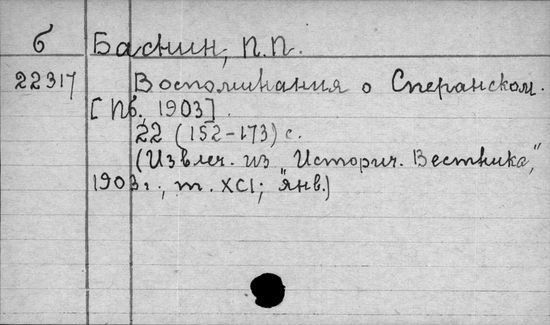 б Баснин, П.П.
22317 Воспоминания о Сперанском.
[Пб., 1903].
22 (152-173) с.
(Извлеч. из "Историч. Вестника",
1903 г., т. XCI; янв.)